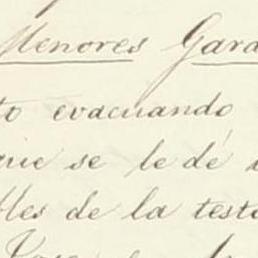 Menores Gara
to evacuando
que se le dé
bles de la testa